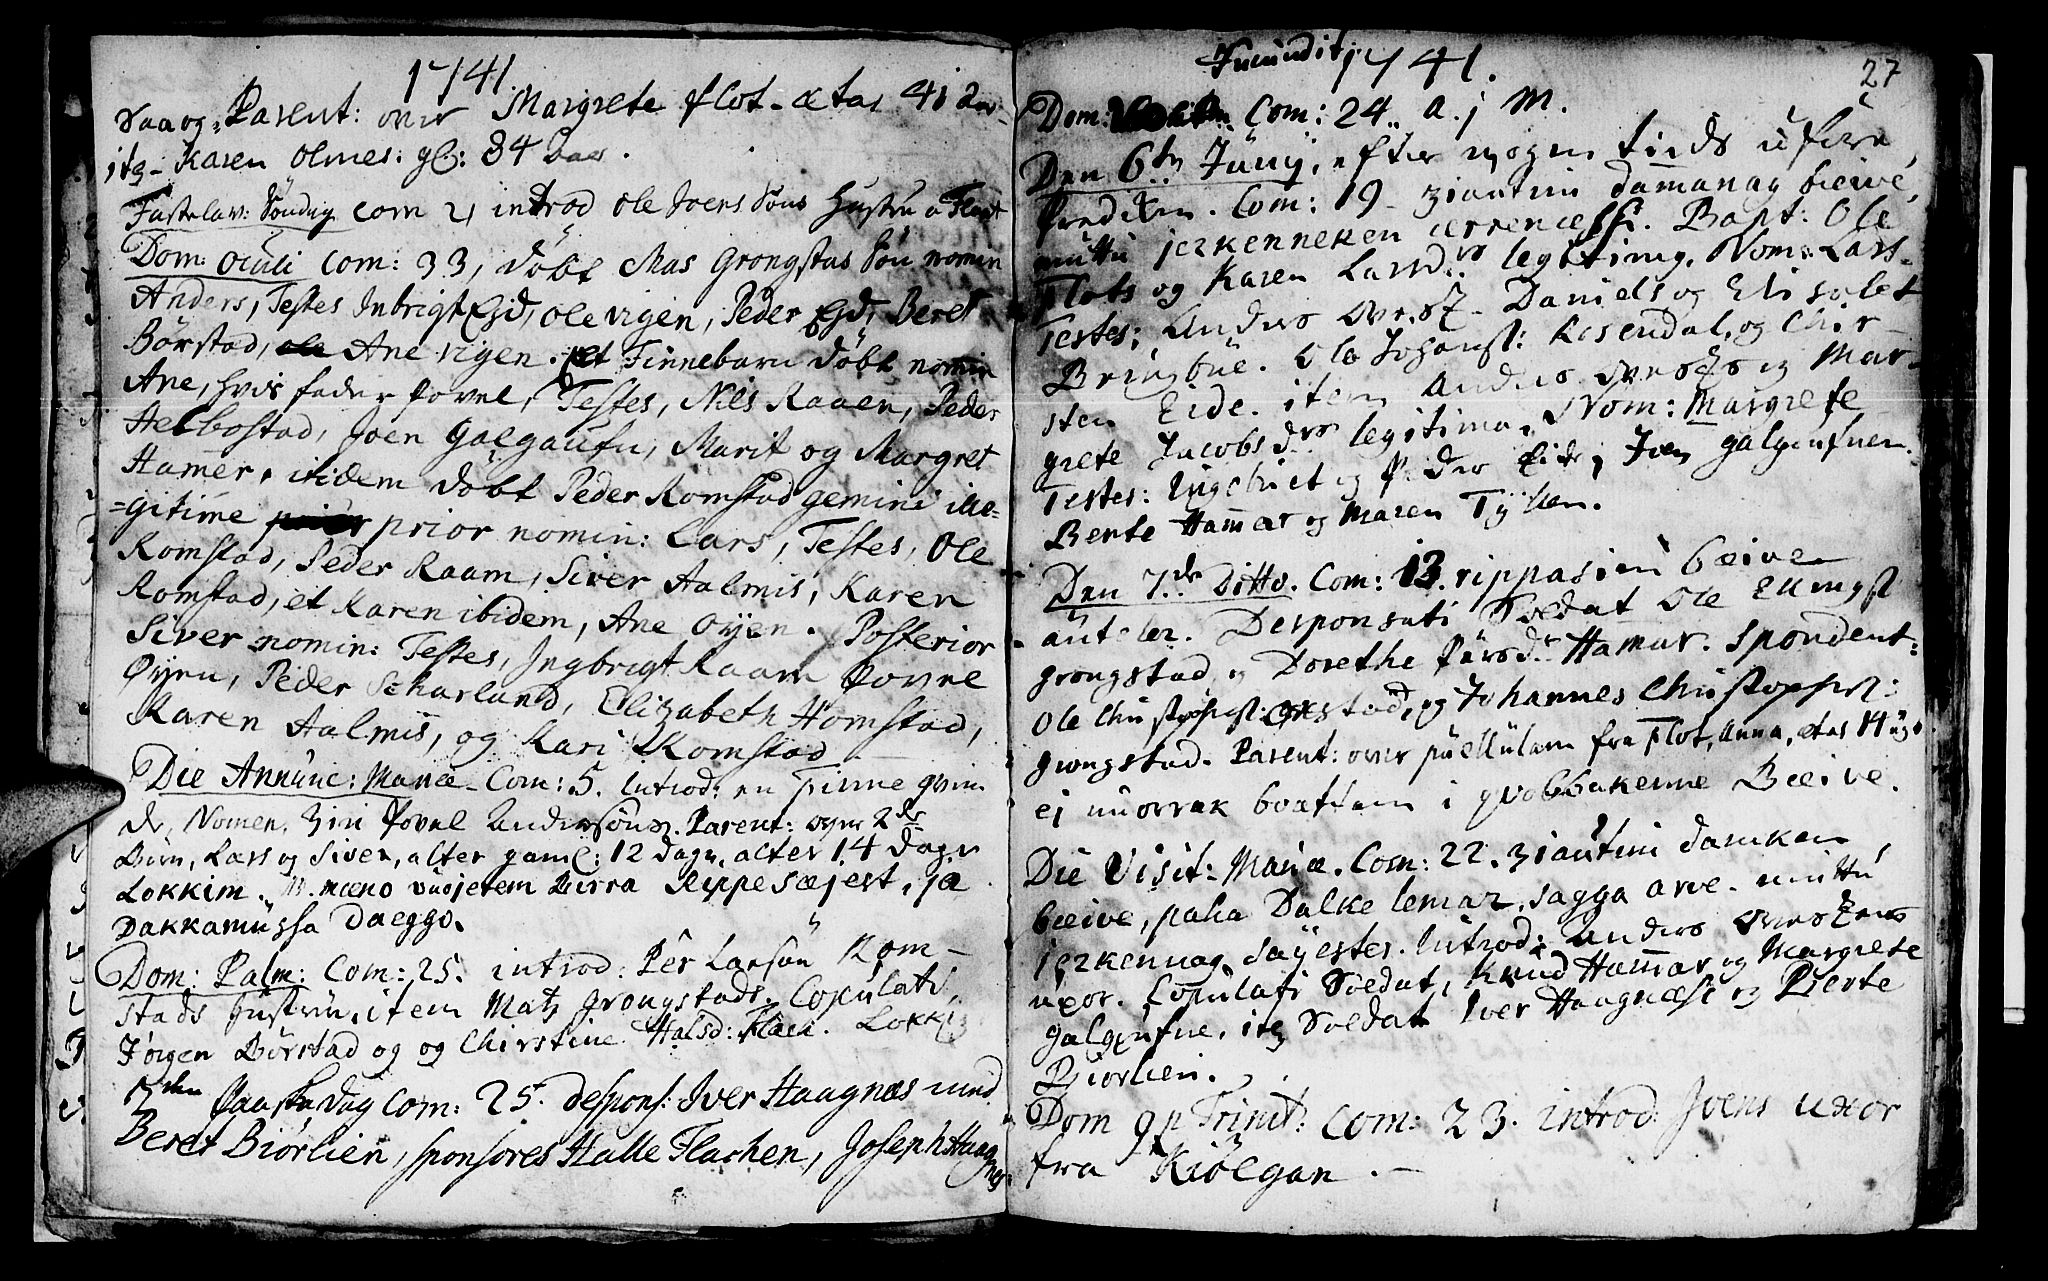 1741.
Saa og Parent: over Margrete Flot. ætas 41 Aar.
it₃ - Karen Olmes: gl: 84 Aar.
Fastelav: Søndag Com 21 introd Ole Joens Søns Hustru a Flot
Dom: Oculi Com: 33, døbt Mas Grongstas Søn nomin
Anders, Testes Inbrigt Eid, Ole vigen, Peder Eid, Beret
Børstad, Ane vigen. et Finnebarn døbt nomin
Ane, hvis fader Povel, Testes, Nils Raaen, Peder
Helbostad, Joen Galgaufn, Marit og Margret
Hamer, itidem døbt Peder Romstad gemini ille-
=gitime prior nomin: Lars, Testes, Ole
Romstad, Peder Raam, Siver Aalmis, Karen
Romstad, et Karen ibidem, Ane Øyen. Posterior
Siver nomin: Testes, Ingbrigt Raam Povel
Øyen, Peder Scharland, Elizabeth Homstad,
Karen Aalmis, og Kari Romstad
Die Annunc: Mariæ. Com: 5. Introd: en Finne qvin
de, Nomen, Povel Andersøns. Parent: over 2de
Børn, Lars og Siver, alter gaml: 12 dage, alter 14 Dage
Lokkim. mæno Birra Rippesæjest, ja
Dakkamussa Daeggo.
Dom: Palm: Com: 25. introd: Per Larsøn Rom-
stads Hustru, item Matz Grongstads. Copulati
Jørgen Børstad og og Chirstine Halsd: Flach. Lokki
2den Paaske Dag Com: 25. despons: Iver Haagnæs med
Beret Biørlien, sponsores Halle Flachen, Joseph Haag
næs
Jucundit 1741.
27
Dom: Com: 24. a. j M.
Den 6te Junij, efter nogen tids ufore,
Prædiken. Com: 19 - ziautini damanag beive,
muttu jerkenneken Bapt: Ole
Flots og Karen Larsdr legitimg. Nom: Lars.
Testes: Anders Daniels og Elisabet
Bringbue. Ole Johans: Rosendal, og Chir-
sten Eide. item Anders og Mar-
grete Jacobsdr legitima. Nom: Margrete
Testes: Ingebriet og Peder Eide, Iver galgufnen.
Bente Hammer og Maren
Den 7de Ditto. Com: 13. rippasim beiven
auteler. Desponsati Soldat Ole Ellingst
grongstad og Dorethe Hamar. Spondent:
Ole Christophers: og Johannes Christophers:
grongstad. Parent: over puellulam fra Flot, Anna, ætas 14 uger
ej muorrak boattam i qvobbakenne Beive.
Die Visit: Mariæ. Com: 22. ziautini damkan
beive, paha Dalke lemaz, sagga arve. muttu
jerkennag sajestes. Introd: Anders
uxor. Copulati Soldat, Knud Hammar og Margrete
Galgufne, it₃ Soldat Iver Haagnæss og Berte
Biorlien.
Dom 9 p Trinit: Com: 23. introd: Ivens uxor
fra Kiølgan.